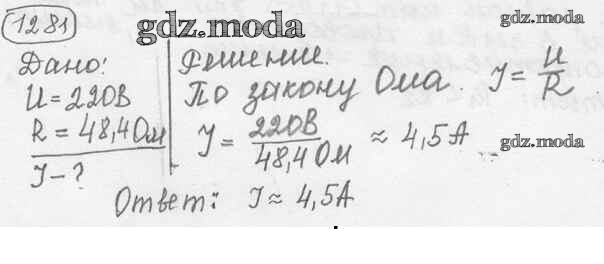 1281
gdz.moda
gdz.moda
Дано:
U=220В
R=48,4Ом
J-?
Решение.
По закону Ома J=U/R
J=220В/48,4Ом≈4,5А
gdz.moda
Ответ: J≈4,5А